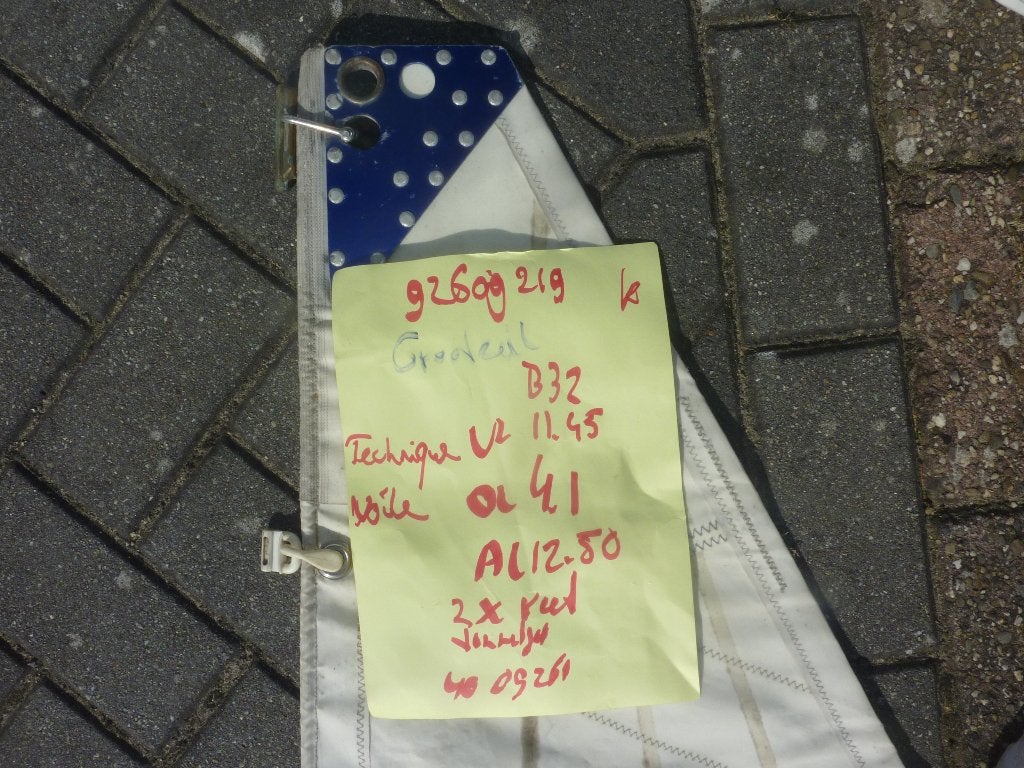 92609219
Grootzeil
B32
Technique VL 11.45
Voile OL 4.1
AL 12.50
2 x reef
09261